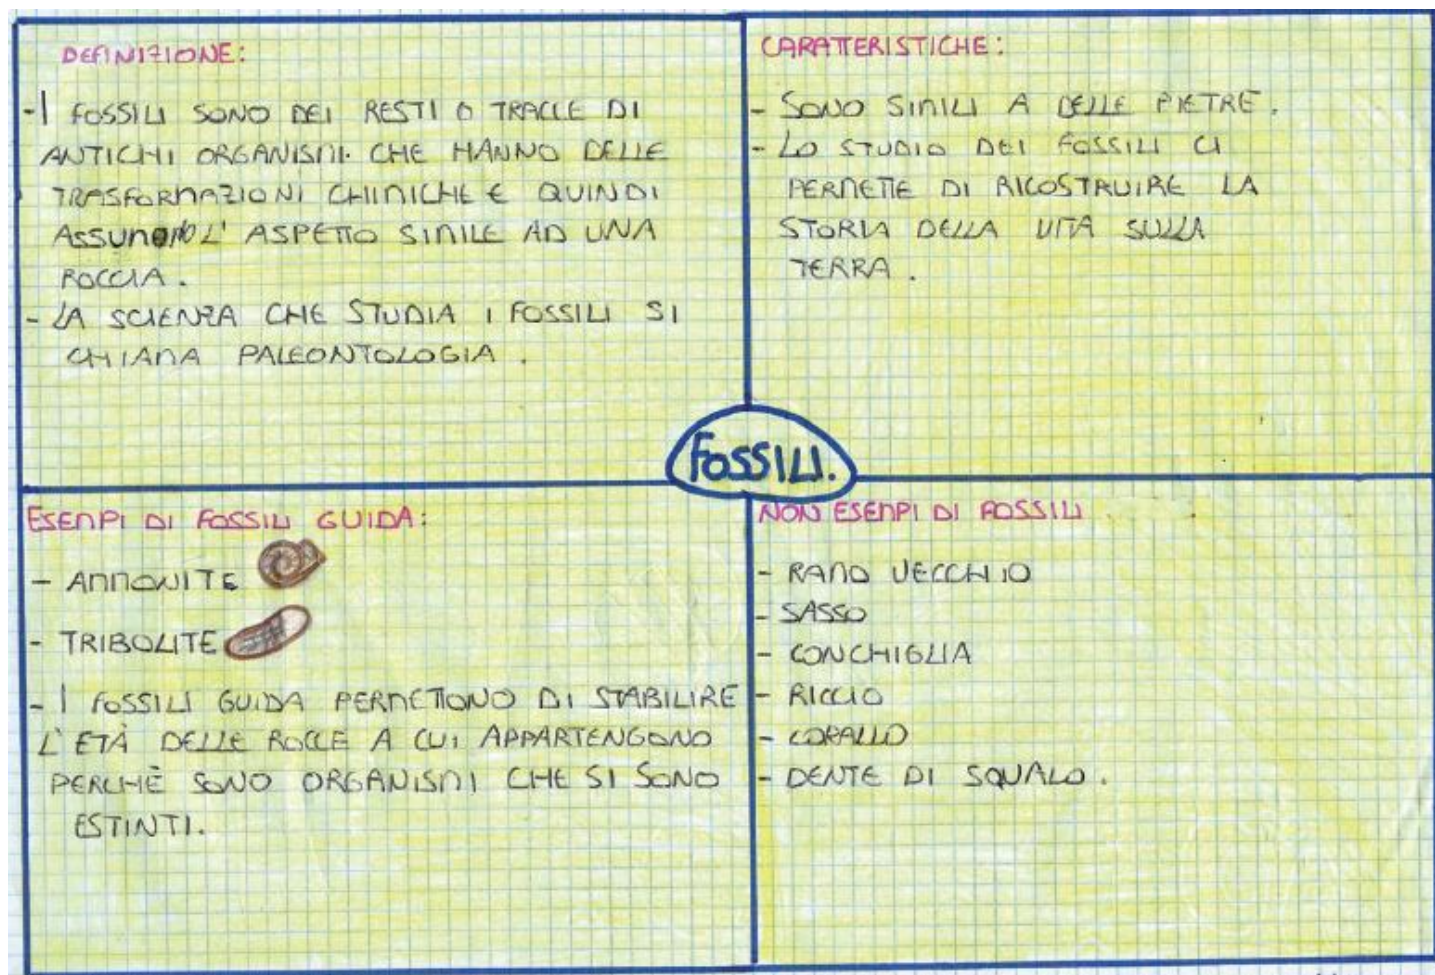 DEFINIZIONE:
- I FOSSILI SONO DEI RESTI O TRACCE DI
ANTICHI ORGANISMI. CHE HANNO DELLE
TRASFORMAZIONI CHIMICHE E QUINDI
ASSUMONO L'ASPETTO SIMILE AD UNA
ROCCIA.
- LA SCIENZA CHE STUDIA I FOSSILI SI
CHIAMA PALEONTOLOGIA.
CARATTERISTICHE:
- SONO SIMILI A DELLE PIETRE.
- LO STUDIO DEI FOSSILI CI
PERMETTE DI RICOSTRUIRE LA
STORIA DELLA VITA SULLA
TERRA.
FOSSILI.
ESEMPI DI FOSSILI GUIDA:
- AMMONITE
- TRIBOLITE
- I FOSSILI GUIDA PERMETTONO DI STABILIRE
L'ETÀ DELLE ROCCE A CUI APPARTENGONO
PERCHÈ SONO ORGANISMI CHE SI SONO
ESTINTI.
NON ESEMPI DI FOSSILI
- RAMO VECCHIO
- SASSO
- CONCHIGLIA
- RICCIO
- CORALLO
- DENTE DI SQUALO.